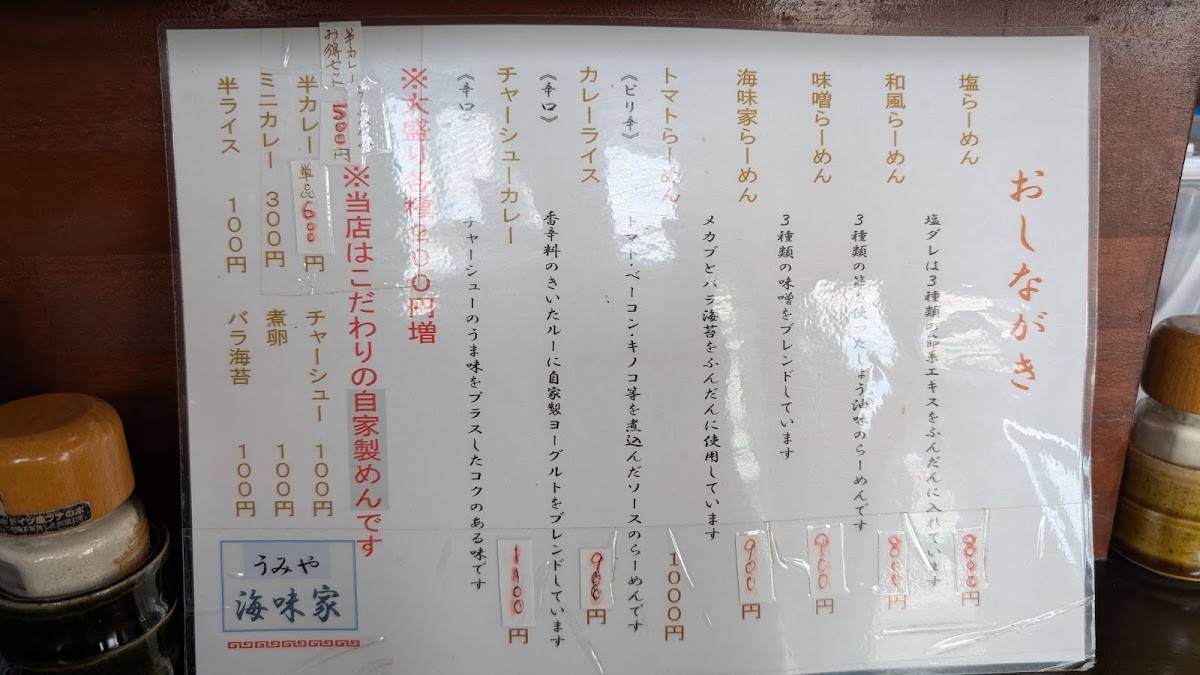 おしながき
塩らーめん
塩ダレは3種類の節系エキスをふんだんに入れています
800円
和風らーめん
3種類の節を使ったしょう油味のらーめんです
800円
味噌らーめん
3種類の味噌をブレンドしています
900円
海味家らーめん
メカブとバラ海苔をふんだんに使用しています
900円
トマトらーめん
《ピリ辛》
トマト・ベーコン・キノコ等を煮込んだソースのらーめんです
1000円
カレーライス
《辛口》
香辛料のきいたルーに自家製ヨーグルトをブレンドしています
900円
チャーシューカレー
《辛口》
チャーシューのうま味をプラスしたコクのある味です
1100円
※大盛り各種200円増
※当店はこだわりの自家製めんです
半カレー
お得セット
500円
半カレー 単品600円
チャーシュー 100円
ミニカレー 300円
煮卵 100円
半ライス 100円
バラ海苔 100円
うみや
海味家